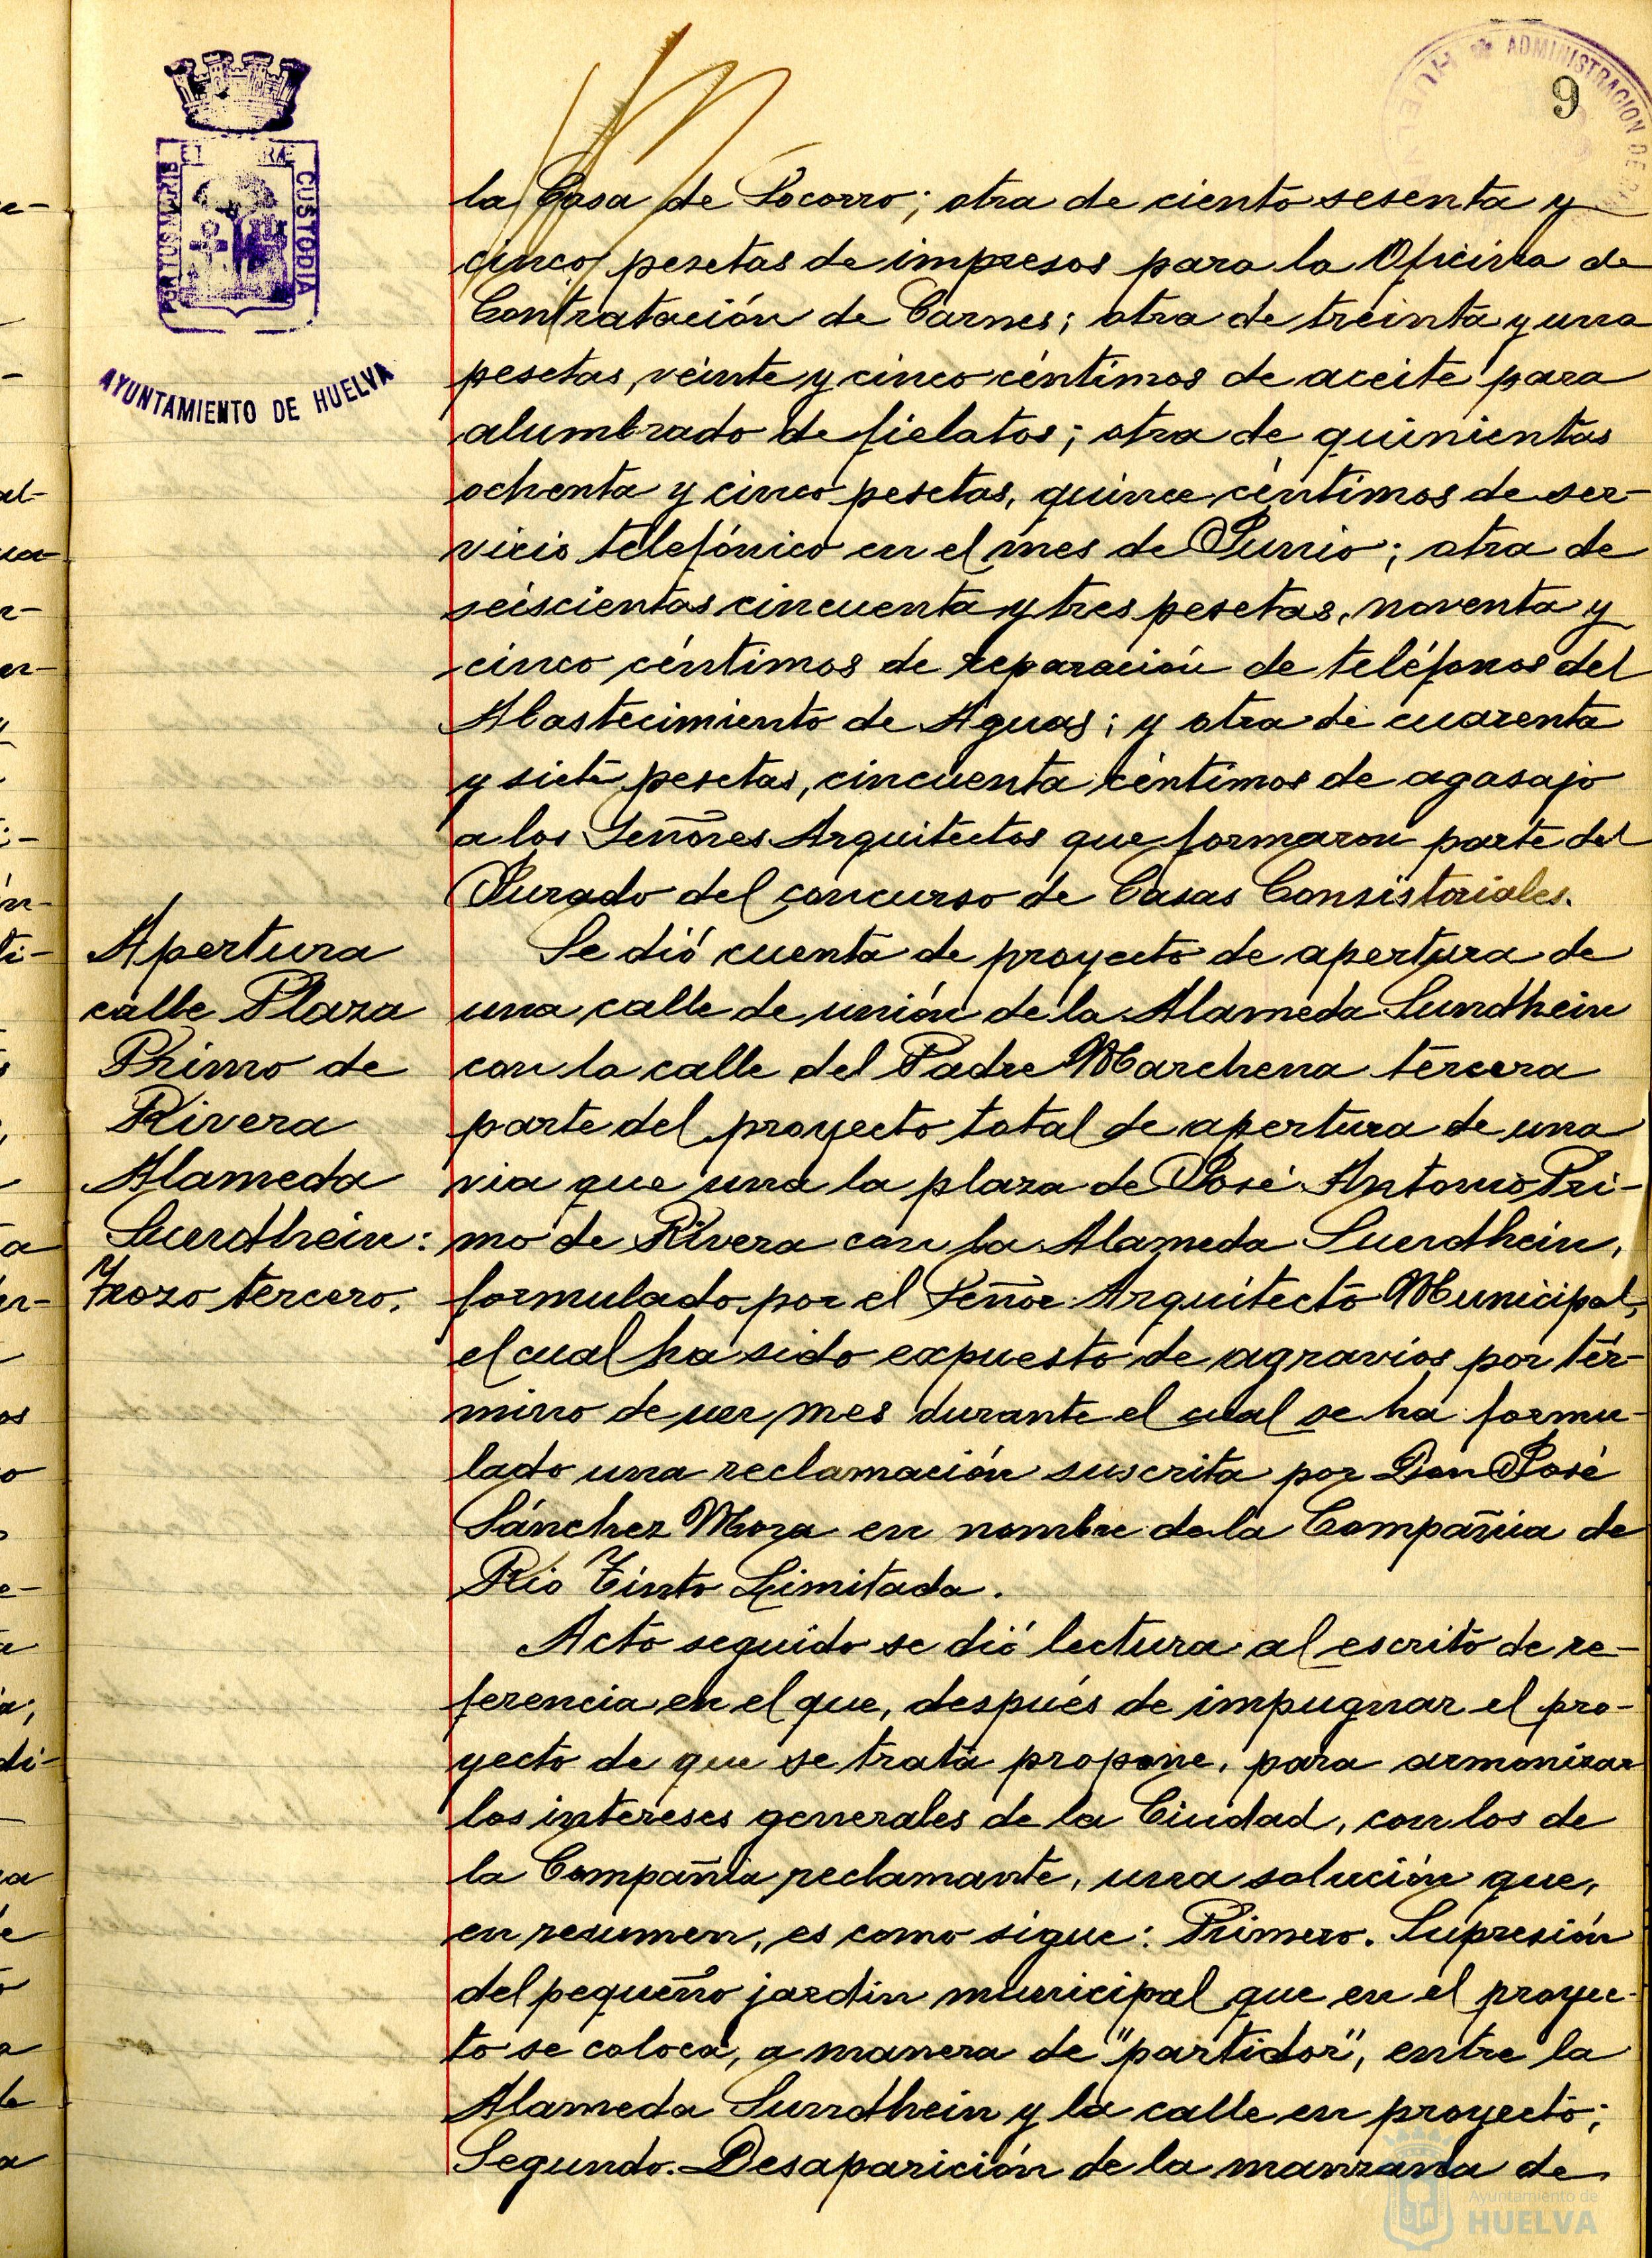 9
ADMINISTRACION DE
PORTUS MARIS
CUSTODIA
AYUNTAMIENTO DE HUELVA
la Casa de Socorro; otra de ciento sesenta y
cinco pesetas de impresos para la Oficina de
Contratación de Carnes; otra de treinta y una
pesetas, veinte y cinco céntimos de aceite para
alumbrado de fielatos; otra de quinientas
ochenta y cinco pesetas, quince céntimos de ser-
vicio telefónico en el mes de Junio; otra de
seiscientas cincuenta y tres pesetas, noventa y
cinco céntimos de reparación de teléfonos del
Abastecimiento de Aguas; y otra de cuarenta
y siete pesetas, cincuenta céntimos de agasajo
a los Señores Arquitectos que formaron parte del
Jurado del concurso de Casas Consistoriales.
Apertura
calle Plaza
Primo de
Rivera
Alameda
Sundhein:
Trozo tercero.
Se dió cuenta de proyecto de apertura de
una calle de unión de la Alameda Sundhein
con la calle del Padre Marchena tercera
parte del proyecto total de apertura de una
via que una la plaza de José Antonio Pri-
mo de Rivera con la Alameda Sundhein,
formulado por el Señor Arquitecto Municipal,
el cual ha sido expuesto de agravios por tér-
mino de un mes durante el cual se ha formu-
lado una reclamación suscrita por Don José
Sánchez Mora en nombre de la Compañia de
Rio Tinto Limitada.
Acto seguido se dió lectura al escrito de re-
ferencia en el que, después de impugnar el pro-
yecto de que se trata propone, para armonizar
los intereses generales de la Ciudad, con los de
la Compañia reclamante, una solución que,
en resumen, es como sigue: Primero. Supresión
del pequeño jardin municipal que en el proyec-
to se coloca, a manera de "partidor", entre la
Alameda Sundhein y la calle en proyecto;
Segundo. Desaparición de la manzana de
Ayuntamiento de
HUELVA